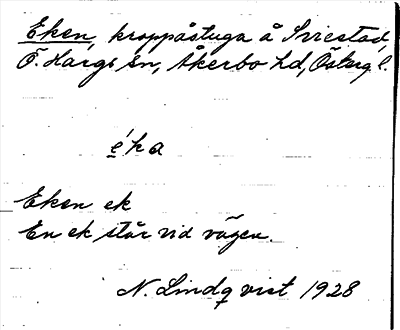 Eken, kroppåstuga å Sviestad,
Ö. Hargs sn, Åkerbo hd, Östergl.
éka
Eken ek
En ek står vid vägen.
N. Lindqvist 1928